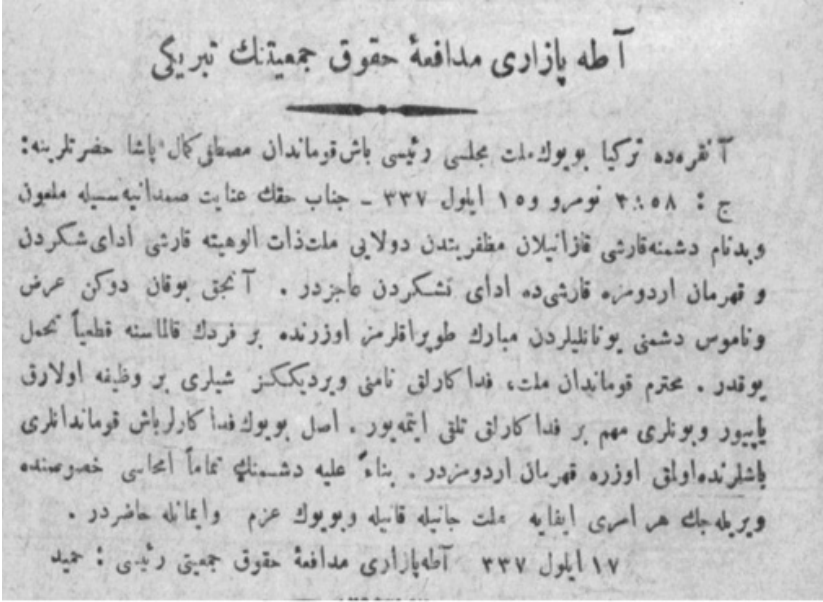 آطه پازاری مدافعهٔ حقوق جمعیتنك تبریکی
آنقره‌ده ترکیا بویوك ملت مجلسی رئیسی باش قوماندان مصطفی کمال پاشا حضرتلرینه:
ج : ٣٠٥٨ نومرو و ١٥ ایلول ٣٣٧ ـ جناب حقك عنایت صمدانیه سیله ملعون
وبدنام دشمنه قارشی قازانیلان مظفریتدن دولایی ملت ذات الوهیته قارشی ادای شکردن
و قهرمان اردومزه قارشی‌ده ادای تشکردن عاجزدر . آنجق بوقان دوکن عرض
وناموس دشمنی یونانلیلردن مبارك طوپراقلرمز اوزرنده بر فردك قالماسنه قطعیاً تحمل
یوقدر . محترم قوماندان ملت، فداکارلق نامنی ویردیککز شیلری بر وظیفه اولارق
یاپیور وبونلری مهم بر فداکارلق تلقی ایتمه‌یور . اصل بویوك فداکارلر باش قوماندانلری
باشلرنده اولمق اوزره قهرمان اردومزدر . بناءً علیه دشمنك تماماً امحاسی خصوصنده
ویریله جك هر امری ایفایه ملت جانیله قانیله وبویوك عزم وایمانله حاضردر .
١٧ ایلول ٣٣٧ آطه‌پازاری مدافعهٔ حقوق جمعیتی رئیسی : حمید